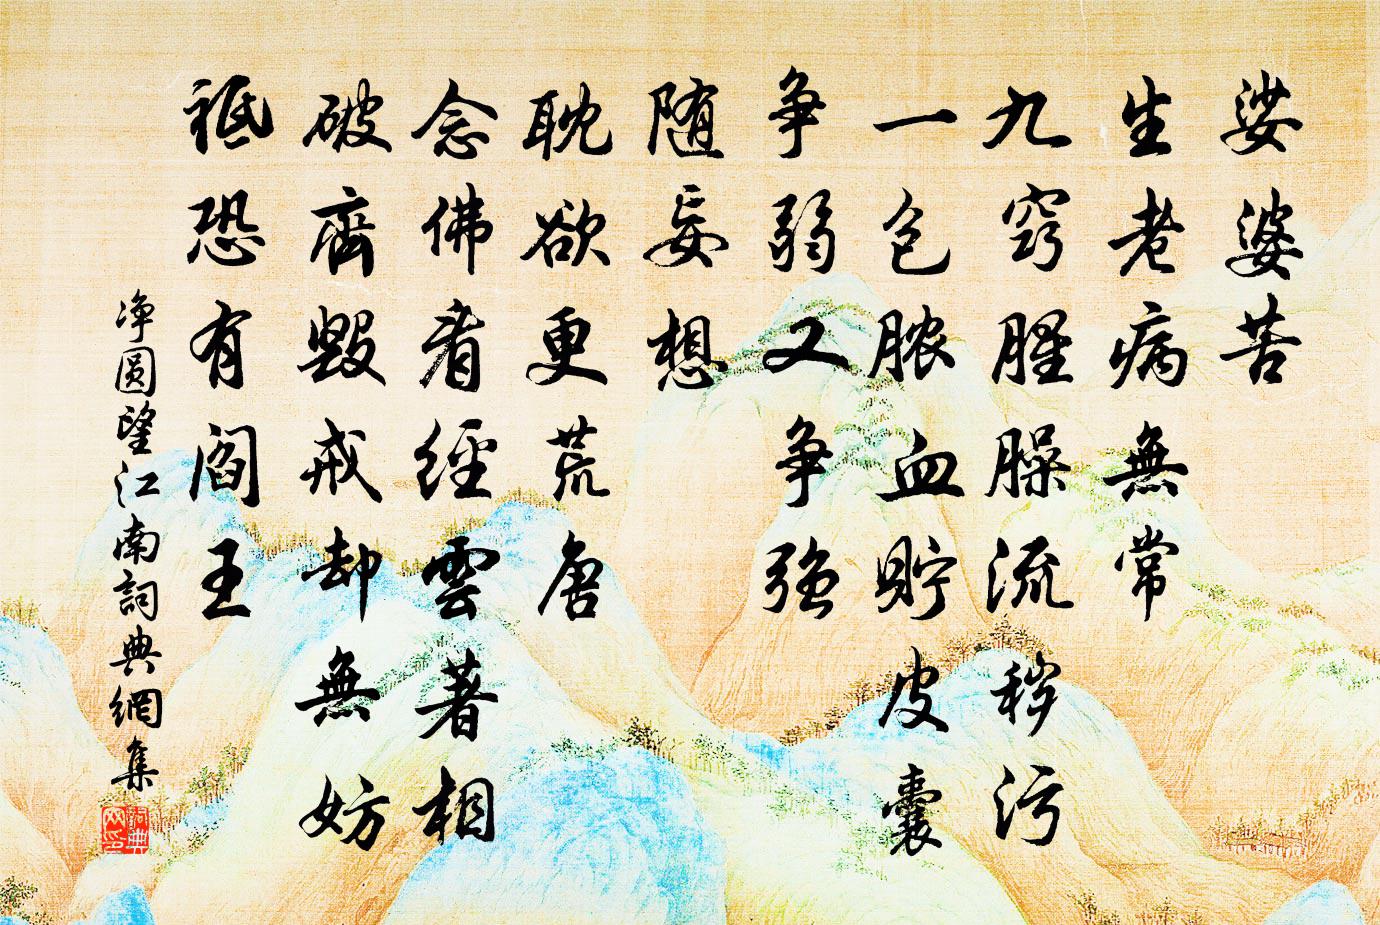 娑婆苦
生老病無常
九窍腥臊流秽污
一包脓血貯皮囊
争弱又争強
随妄想
耽欲更荒唐
念佛看經雲著相
破齋毀戒却無妨
祗恐有阎王
净圆望江南詞典網集